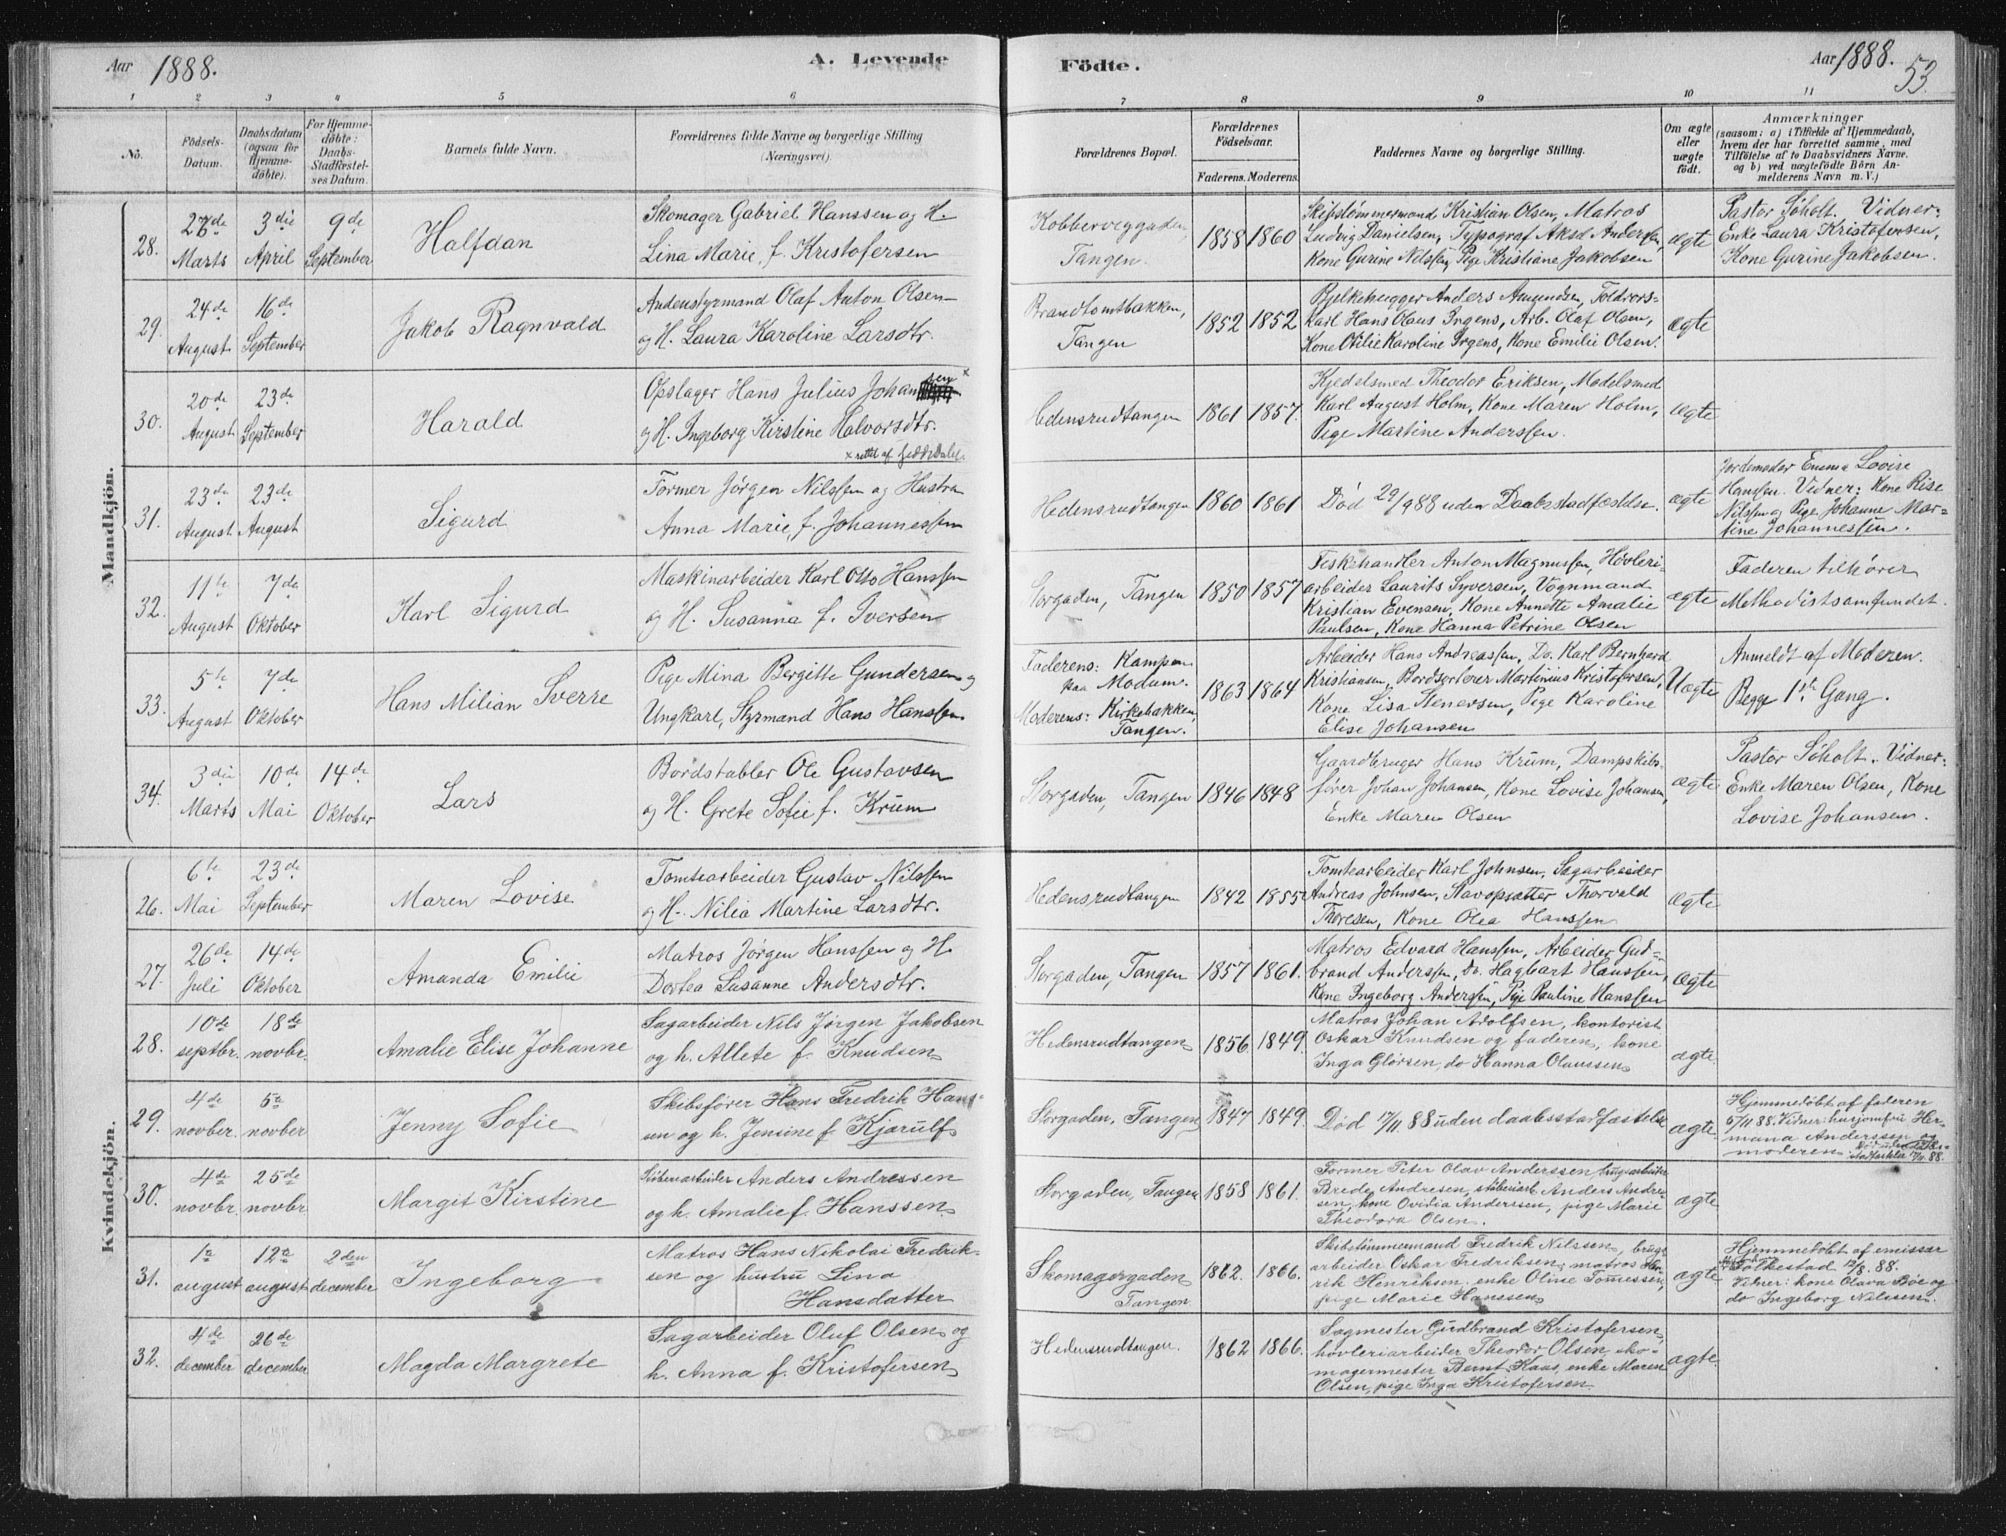 Aar 1888.
A. Levende
Födte.
Aar 1888.
53.
1 2 3 4 5 6 7 8 9 10 11
No.
Födsels-
Datum.
Daabsdatum
(ogsaa for
Hjemme-
döbte).
For Hjemme-
döbte:
Daabs-
Stadfæstel-
ses Datum.
Barnets fulde Navn.
Forældrenes fulde Navne og borgerlige Stilling
(Næringsvei).
Forældrenes Bopæl.
Forældrenes
Födselsaar.
Faderens. Moderens.
Faddernes Navne og borgerlige Stilling.
Om ægte
eller
uægte
födt.
Anmærkninger
(saasom: a) i Tilfælde af Hjemmedaab,
hvem der har forrettet samme, med
Tilföielse af to Daabsvidners Navne.
og b) ved uægtefödte Börn An-
melderens Navn m. V.)
Mandkjön.
28.
27de
Marts
3die
April
9de
September
Halfdan
Skomager Gabriel Hanssen og H.
Lina Marie, f. Kristofersen
Kobberveggaden,
Tangen.
1858 1860
Skibstømmermand Kristian Olsen, Matros
Ludvig Danielsen, Typograf Aksel Andersen,
Kone Gurine Nilssen, Pige Kristiane Jakobsen
ægte
Pastor Søholt. Vidner:
Enke Laura Kristofersen,
Kone Gurine Jakobsen.
29.
24de
August
16de
September
Jakob Ragnvald
Andenstyrmand Olaf Anton Olsen
og H. Laura Karoline Larsdtr.
Brandtomtbakken,
Tangen
1852 1852
Bjelkehugger Anders Amundsen, Toldrors-
karl Hans Olaus Irgens, Arb. Olaf Olsen,
Kone Otilie Karoline Irgens, Kone Emilie Olsen.
ægte
30.
20de
August
23de
September
Harald
Opslager Hans Julius Johansen x
og H. Ingeborg Kirstine Halvorsdtr.
x rettet af
Hedensrudtangen
1861 1857.
Kjedelsmed Theodor Eriksen, Modelsmed
Karl August Holm, Kone Maren Holm,
Pige Martine Anderssen.
ægte
31.
23de
August
23de
August
Sigurd
Former Jørgen Nilssen og Hustru
Anna Marie, f. Johannessen
Hedensrudtangen
1860 1861
Død 29/9 88 uden Daabsstadfæstelse.
ægte
Jordemoder Emma Lovise
Hanssen. Vidner: Kone Rise
Nilssen og Pige Johanne Mar-
tine Johannessen.
32.
11te
August
7de
Oktober
Karl Sigurd
Maskinarbeider Karl Otto Hanssen
og H. Susanna f. Iversen
Storgaden, Tangen
1850 1857
Fiskehandler Anton Magnussen, Høvleri-
arbeider Laurits Syversen, Vognmand
Kristian Evensen, Kone Annette Amalie
Paulsen, Kone Hanna Petrine Olsen
ægte
Faderen tilhører
Methodistsamfundet.
33.
5te
August
7de
Oktober
Hans Milian Sverre
Pige Mina Bergitte Gundersen og
Ungkarl, Styrmand Hans Hanssen
Faderens: Kampen
paa Modum.
Moderens: Kirkebakken,
Tangen.
1863 1864
Arbeider Hans Andreassen, Do. Karl Bernhard
Kristiansen, Bordsorterer Martinius Kristofersen,
Kone Lisa Stenersen, Pige Karoline
Elise Johansen
Uægte
Anmeldt af Moderen.
Begge 1ste Gang.
34.
3die
Marts
10de
Mai
14de
Oktober
Lars
Bordstabler Ole Gustavsen
og H. Grete Sofie f. Krum
Storgaden, Tangen
1846 1848
Gaardbruger Hans Krum, Dampskibs-
fører Johan Johansen, Kone Lovise Johansen,
Enke Maren Olsen
ægte
Pastor Søholt. Vidner:
Enke Maren Olsen, Kone
Lovise Johansen.
Kvindekjön.
26.
6te
Mai
23de
September
Maren Lovise
Tomtearbeider Gustav Nilssen
og H. Nilia Martine Larsdtr.
Hedensrudtangen
1842 1855
Tomtearbeider Karl Johnsen, Sagarbeider
Andreas Johnsen, Stavopsætter Thorvald
Thoresen, Kone Olea Hanssen
ægte
27.
26de
Juli
14de
Oktober
Amanda Emilie
Matros Jørgen Hanssen og H.
Dortea Susanne Andersdtr.
Storgaden, Tangen
1857 1861.
Matros Edvard Hanssen, Arbeider Gud-
brand Anderssen, Do. Hagbart Hanssen,
Kone Ingeborg Anderssen, Pige Pauline Hanssen
ægte
28.
10de
septbr.
18de
novbr.
Amalie Elise Johanne
Sagarbeider Nils Jørgen Jakobsen
og h. Allete f. Knudsen
Hedensrudtangen
1856 1849.
Matros Johan Adolfsen, kontorist
Oskar Knudsen og faderen, kone
Inga Glørsen, do Hanna Olaussen
ægte.
29.
4de
novber.
5te
novber
Jenny Sofie
Skibsfører Hans Fredrik Hans-
sen og h. Jensine f. Kjærulf
Storgaden, Tangen
1847 1849.
Død 17/11 88 uden daabsstadfæstelse
ægte.
Hjemmedøbt af faderen
5/11 88. Vidner: husjomfru Her-
mana Anderssen og
moderen.
30.
4de
novbr.
25de
novbr
Margit Kirstine
Støberiarbeider Anders Andressen
og h. Amalie f. Hanssen.
Storgaden, Tangen
1858 1861.
Former Peter Olav Anderssen, brugsarbeider
Brede Andresen, støberiarb. Anders Andre-
sen, kone Ovidia Anderssen, pige Marie
Theodora Olsen.
ægte
31.
1ste
august
12te
august
2den
december
Ingeborg
Matros Hans Nikolai Fredrik-
sen og hustru Lina
Hansdatter
Skomagergaden
Tangen
1862. 1866.
Skibstømmermand Fredrik Nilssen, brugs-
arbeider Oskar Fredriksen, matros Hen-
rik Henriksen, enke Oline Tomessen,
pige Marie Hanssen
ægte
Hjemmedøbt af emissær
Folkestad 12/8. 88.
Vidner: kone Olava Bøe og
do Ingeborg Nilssen.
32.
4de
december
26de
december
Magda Margrete
Sagarbeider Oluf Olsen og
h. Anna f. Kristofersen
Hedensrudtangen.
1862 1866.
Sagmester Gudbrand Kristofersen,
høvleriarbeider Theodor Olsen, sko-
magermester Bernt Kaas, enke Maren
Olsen, pige Inga Kristofersen
ægte.